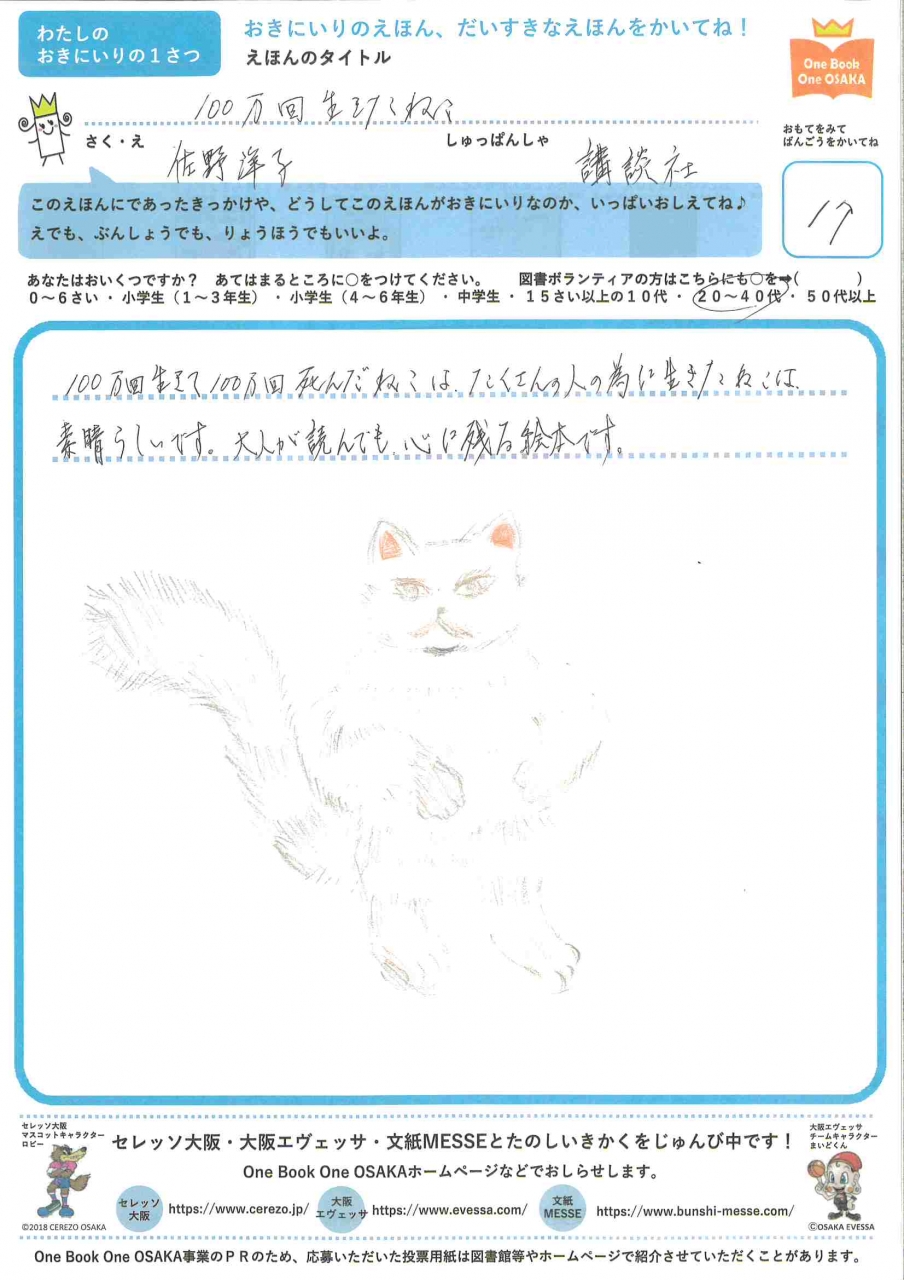 わたしの
おきにいりの1さつ
おきにいりのえほん、だいすきなえほんをかいてね！
えほんのタイトル
One Book
One OSAKA
100万回生きたねこ
さく・え
佐野洋子
しゅっぱんしゃ
講談社
おもてをみて
ばんごうをかいてね
17
このえほんにであったきっかけや、どうしてこのえほんがおきにいりなのか、いっぱいおしえてね♪
えでも、ぶんしょうでも、りょうほうでもいいよ。
あなたはおいくつですか？　あてはまるところに○をつけてください。　図書ボランティアの方はこちらにも○を➡(　　)
0～6さい・小学生（1～3年生）・小学生（4～6年生）・中学生・15さい以上の10代・20～40代・50代以上
100万回生きて100万回死んだねこは、たくさんの人の為に生きたねこは、
素晴らしいです。大人が読んでも、心に残る絵本です。
セレッソ大阪
マスコットキャラクター
ロビー
©2018 CEREZO OSAKA
セレッソ大阪・大阪エヴェッサ・文紙MESSEとたのしいきかくをじゅんび中です！
One Book One OSAKAホームページなどでおしらせします。
セレッソ
大阪
https://www.cerezo.jp/
大阪
エヴェッサ
https://www.evessa.com/
文紙
MESSE
https://www.bunshi-messe.com/
大阪エヴェッサ
チームキャラクター
まいどくん
©OSAKA EVESSA
One Book One OSAKA事業のPRのため、応募いただいた投票用紙は図書館等やホームページで紹介させていただくことがあります。